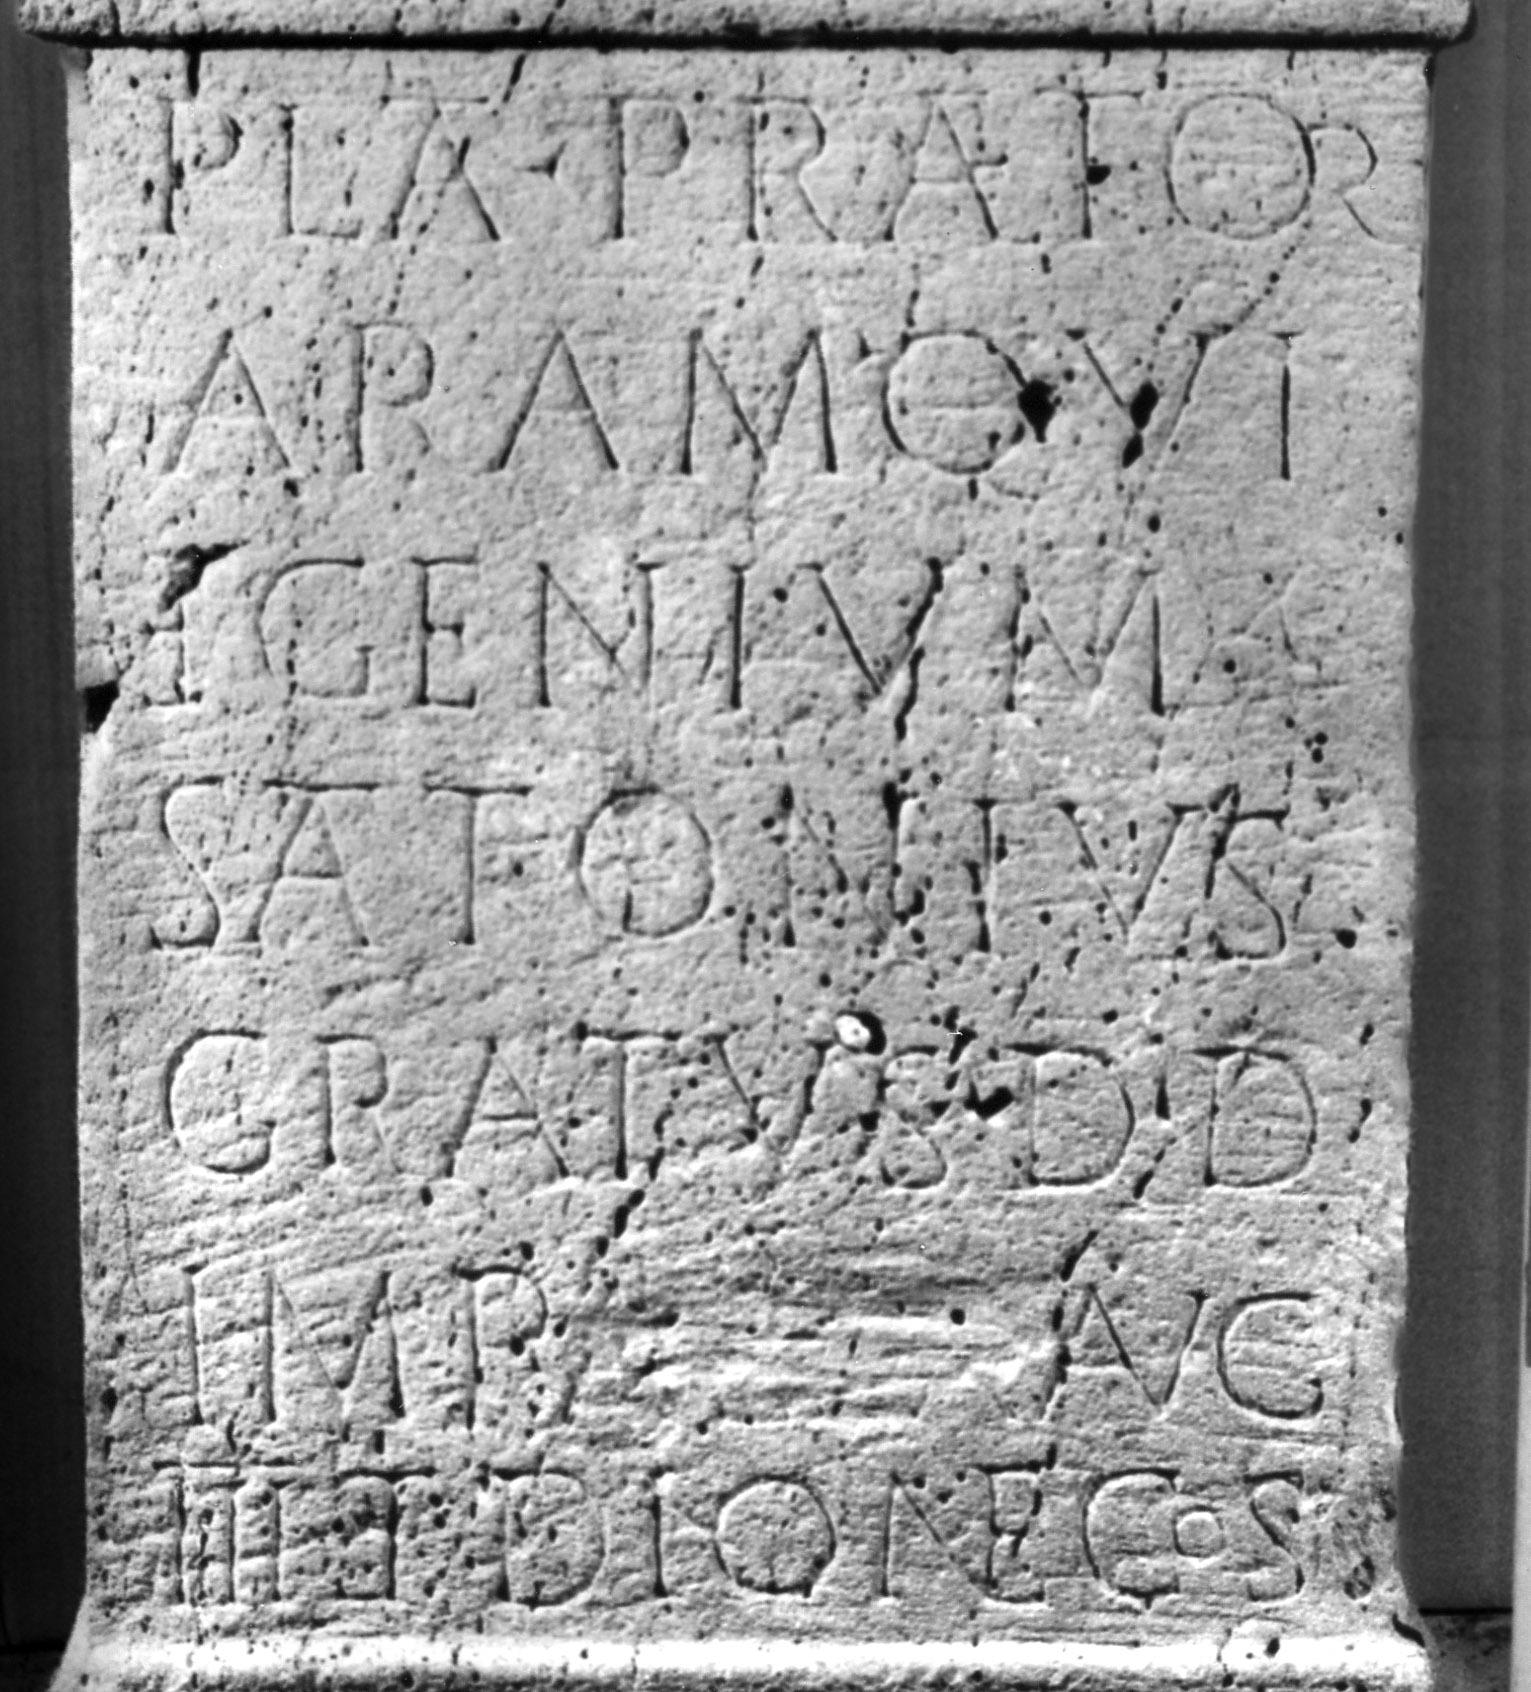 PLA·PRATOR
ARAMQVI
T GENIVM
SATONIVS
GRATVS D D
IMP AVG
III ET DIONE COS